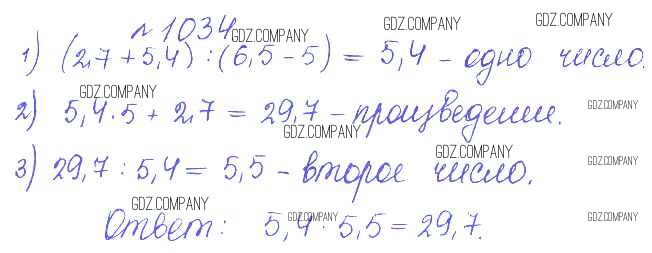 №1034 GDZ.COMPANY GDZ.COMPANY GDZ.COMPANY
1) (2,7 + 5,4) : (6,5 - 5) = 5,4 - одно число.
GDZ.COMPANY GDZ.COMPANY
2) 5,4 · 5 + 2,7 = 29,7 - произведение.
GDZ.COMPANY GDZ.COMPANY GDZ.COMPANY
3) 29,7 : 5,4 = 5,5 - второе число.
GDZ.COMPANY GDZ.COMPANY GDZ.COMPANY
Ответ: 5,4 · 5,5 = 29,7.